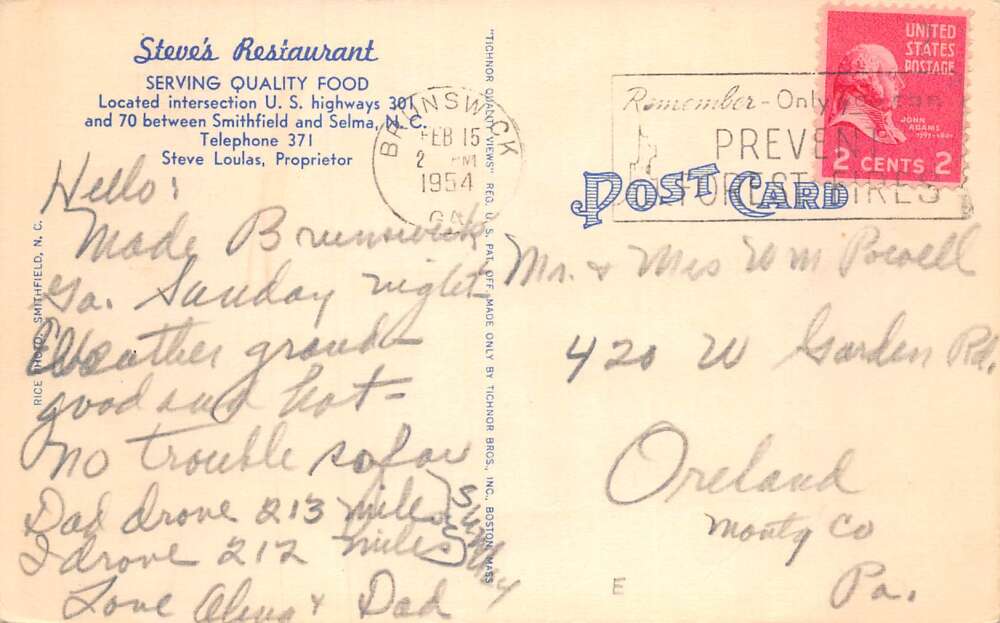 Steve's Restaurant
SERVING QUALITY FOOD
Located intersection U. S. highways 301
and 70 between Smithfield and Selma, N. C.
Telephone 371
Steve Loulas, Proprietor
RICE PHOTO, SMITHFIELD, N. C.
"TICHNOR QUALITY VIEWS" REG. U. S. PAT. OFF. MADE ONLY BY TICHNOR BROS., INC., BOSTON, MASS
BRUNSWICK
FEB 15
2 PM
1954
GA.
Remember - Only you can
PREVENT
FOREST FIRES
UNITED
STATES
POSTAGE
JOHN
ADAMS
2 CENTS 2
POST CARD
Hello:
Made Brunswick
Ga. Sunday night
Weather grand -
good and hot -
no trouble so far
Dad drove 213 miles
I drove 212 miles
Sunday
Love & Dad
Mr. & Mrs Wm Powell
420 W Garden Rd.
Oreland
Montg Co
Pa.
E